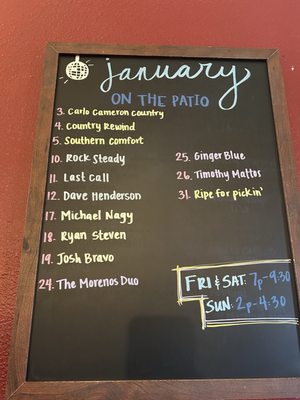 January
ON THE PATIO
3. Carlo Cameron Country
4. Country Rewind
5. Southern Comfort
10. Rock Steady
11. Last Call
12. Dave Henderson
17. Michael Nagy
18. Ryan Steven
19. Josh Bravo
24. The Morenos Duo
25. Ginger Blue
26. Timothy Mattos
31. Ripe for pickin'
FRI & SAT: 7p-9:30
SUN: 2p-4:30